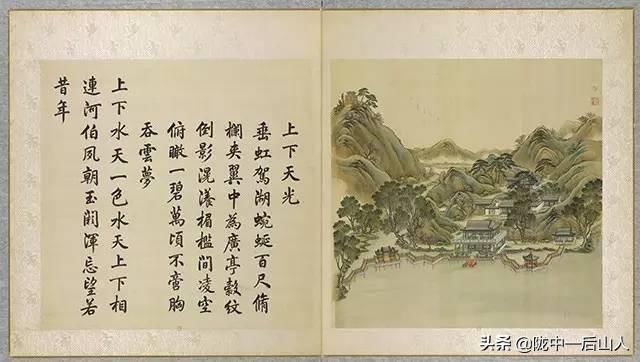 上下天光
垂虹駕湖蜿蜒百尺脩
欄夾翼中為廣亭縠紋
倒影滉漾楣檻間凌空
俯瞰一碧萬頃不啻胸
吞雲夢
上下水天一色水天上下相
連河伯夙朝玉闕渾忘望若
昔年
头条 @陇中一后山人